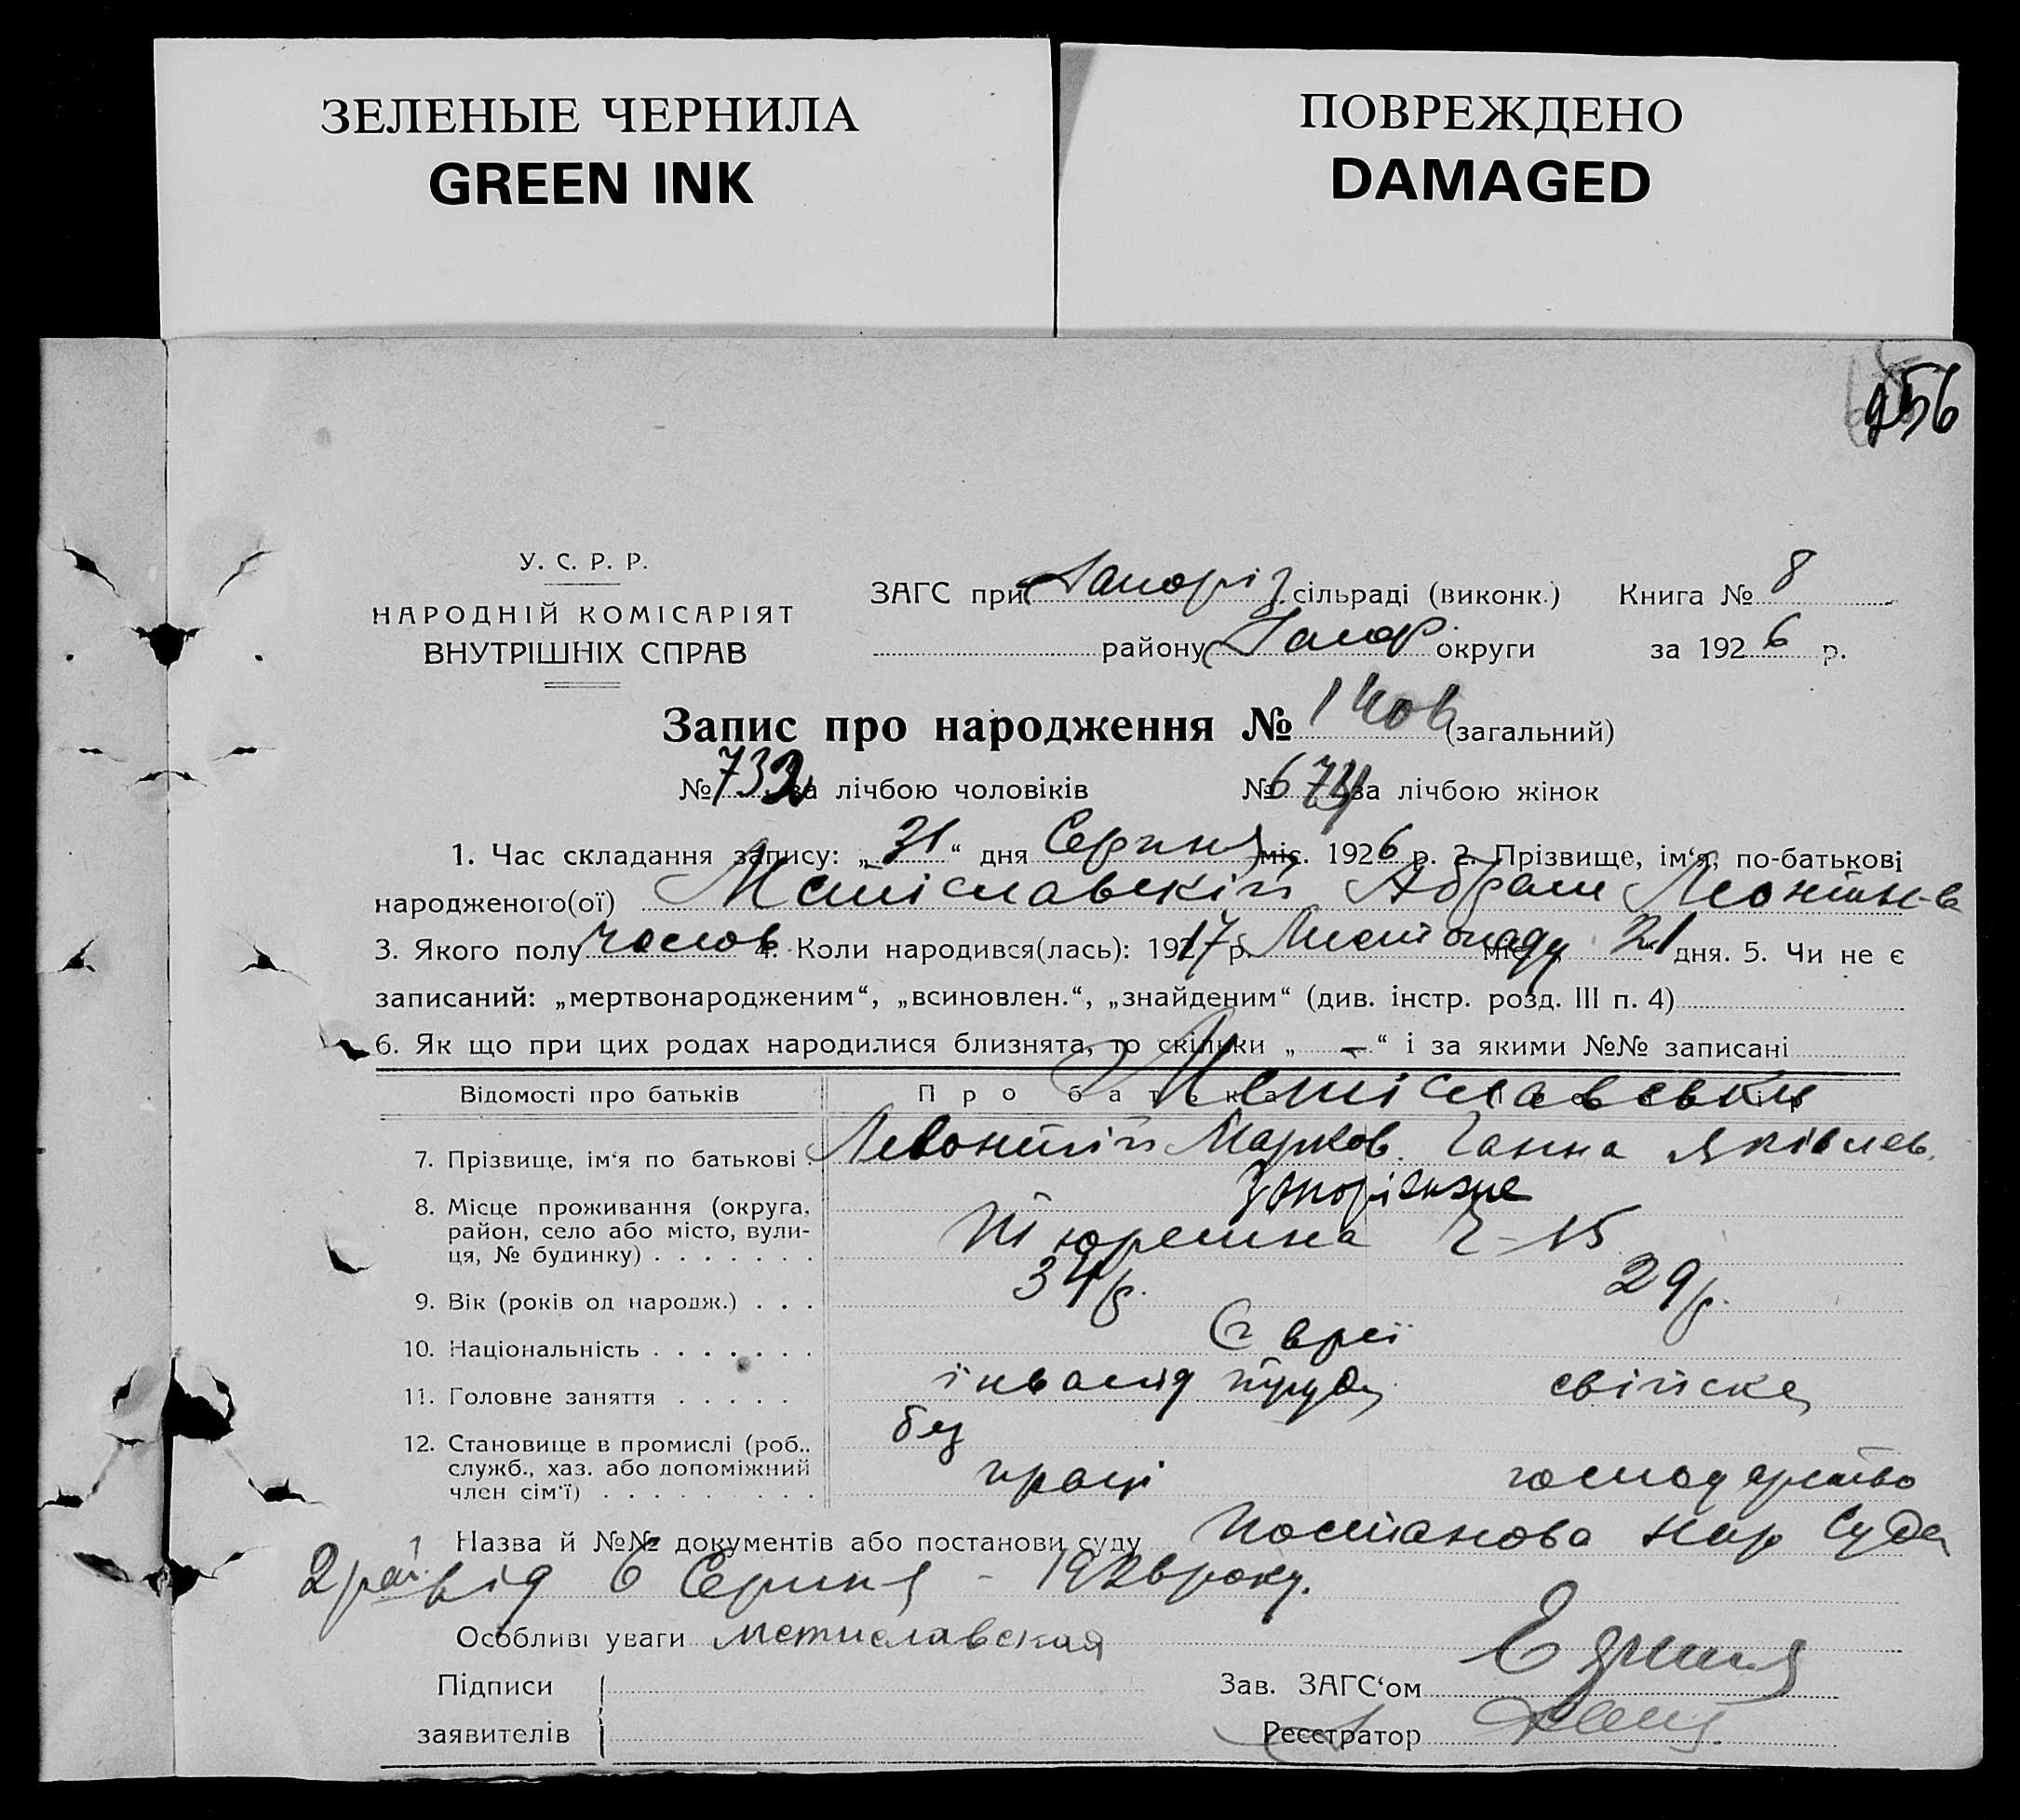 ЗЕЛЕНЫЕ ЧЕРНИЛА
GREEN INK
ПОВРЕЖДЕНО
DAMAGED
256
У. С. Р. Р.
НАРОДНІЙ КОМІСАРІЯТ
ВНУТРІШНІХ СПРАВ
ЗАГС при Запоріз. сільраді (виконк.) Книга № 8
району Запор округи за 1926 р.
Запис про народження № (загальний)
№ 732 за лічбою чоловіків № 674 за лічбою жінок
1. Час складання запису: „31“ дня Серпня міс. 1926 р. 2. Прізвище, ім‘я, по-батькові
народженого(ої) Мстіславскій Абрам
3. Якого полу чолов 4. Коли народився(лась): 1917 р. Листопаду міс. 21 дня. 5. Чи не є
записаний: „мертвонародженим“, „всиновлен.“, „знайденим“ (див. інстр. розд. III п. 4)
6. Як що при цих родах народилися близнята, то скільки „ — “ і за якими №№ записані
Відомості про батьків Про батька Мстіславськи
7. Прізвище, ім‘я по батькові . Левонтій Марков. Ганна Яківлев.
8. Місце проживання (округа, Запоріжже
район, село або місто, вули-
ця, № будинку) . . . . . . . 15
9. Вік (років од народж.) . . . 34 р. 29 р.
10. Національність . . . . . . . Євреї
11. Головне заняття . . . . . інвалід труда свійске
12. Становище в промислі (роб., без
служб., хаз. або допоміжний праці господарство
член сім‘ї) . . . . . . . . .
Назва й №№ документів або постанови суду Постанова Нар Суда
2 рай. від 6 Серпня - 1926 року.
Особливі уваги мстиславская
Підписи
заявителів
Зав. ЗАГС‘ом
Реєстратор